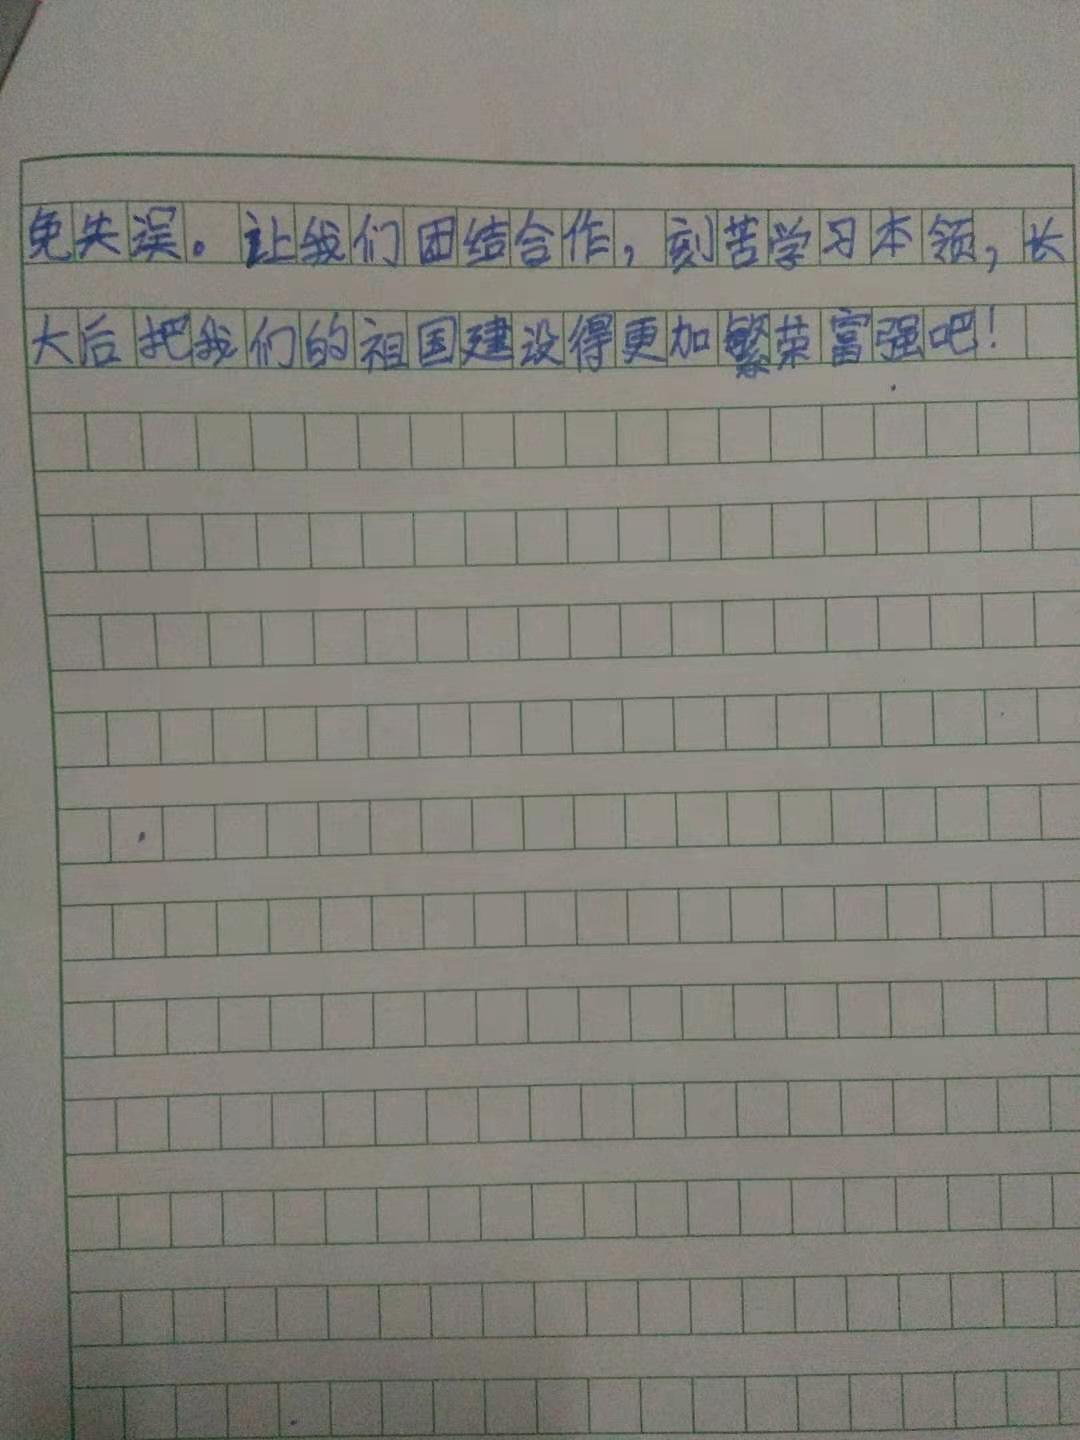 免失误。让我们团结合作，刻苦学习本领，长
大后把我们的祖国建设得更加繁荣富强吧！